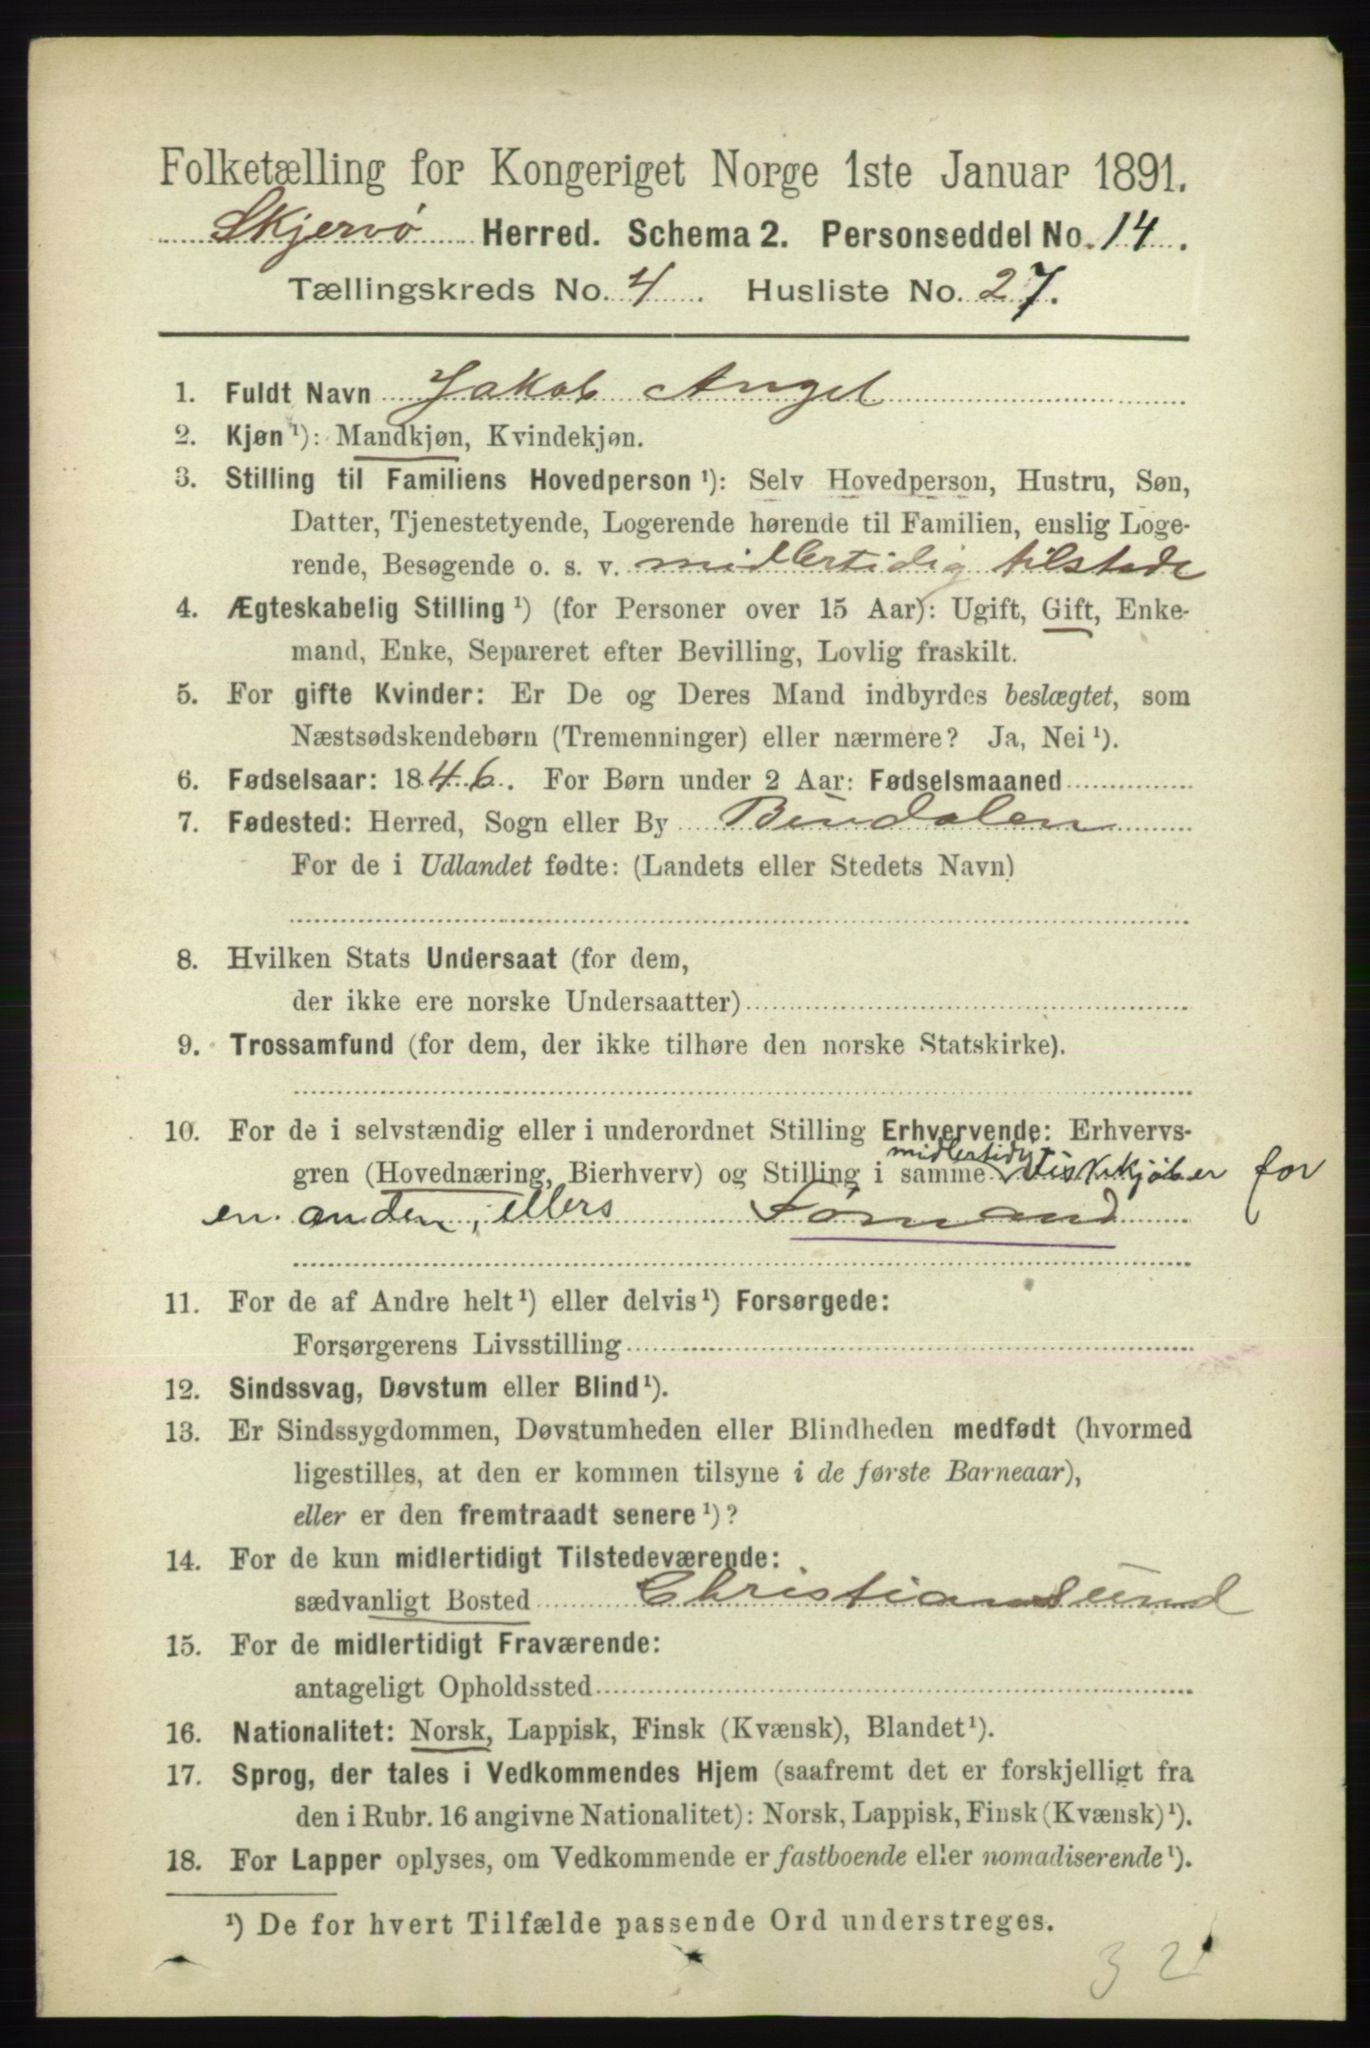 Folketælling for Kongeriget Norge 1ste Januar 1891.
Skjervø Herred. Schema 2. Personseddel No. 14.
Tællingskreds No. 4. Husliste No. 27.
1. Fuldt Navn Jakob Angel
2. Kjøn ¹): Mandkjøn, Kvindekjøn.
3. Stilling til Familiens Hovedperson ¹): Selv Hovedperson, Hustru, Søn,
Datter, Tjenestetyende, Logerende hørende til Familien, enslig Loge-
rende, Besøgende o. s. v. midlertidig tilstede
4. Ægteskabelig Stilling ¹) (for Personer over 15 Aar): Ugift, Gift, Enke-
mand, Enke, Separeret efter Bevilling, Lovlig fraskilt.
5. For gifte Kvinder: Er De og Deres Mand indbyrdes beslægtet, som
Næstsødskendebørn (Tremenninger) eller nærmere? Ja, Nei ¹).
6. Fødselsaar: 1846. For Børn under 2 Aar: Fødselsmaaned
7. Fødested: Herred, Sogn eller By Bindalen
For de i Udlandet fødte: (Landets eller Stedets Navn)
8. Hvilken Stats Undersaat (for dem,
der ikke ere norske Undersaatter)
9. Trossamfund (for dem, der ikke tilhøre den norske Statskirke).
10. For de i selvstændig eller i underordnet Stilling Erhvervende: Erhvervs-
gren (Hovednæring, Bierhverv) og Stilling i samme midlertidig Fiskekjøber for
en anden, ellers Førmand
11. For de af Andre helt ¹) eller delvis ¹) Forsørgede:
Forsørgerens Livsstilling
12. Sindssvag, Døvstum eller Blind ¹).
13. Er Sindssygdommen, Døvstumheden eller Blindheden medfødt (hvormed
ligestilles, at den er kommen tilsyne i de første Barneaar),
eller er den fremtraadt senere ¹)?
14. For de kun midlertidigt Tilstedeværende:
sædvanligt Bosted Christiansund
15. For de midlertidigt Fraværende:
antageligt Opholdssted
16. Nationalitet: Norsk, Lappisk, Finsk (Kvænsk), Blandet ¹).
17. Sprog, der tales i Vedkommendes Hjem (saafremt det er forskjelligt fra
den i Rubr. 16 angivne Nationalitet): Norsk, Lappisk, Finsk (Kvænsk) ¹).
18. For Lapper oplyses, om Vedkommende er fastboende eller nomadiserende ¹).
¹) De for hvert Tilfælde passende Ord understreges.
32